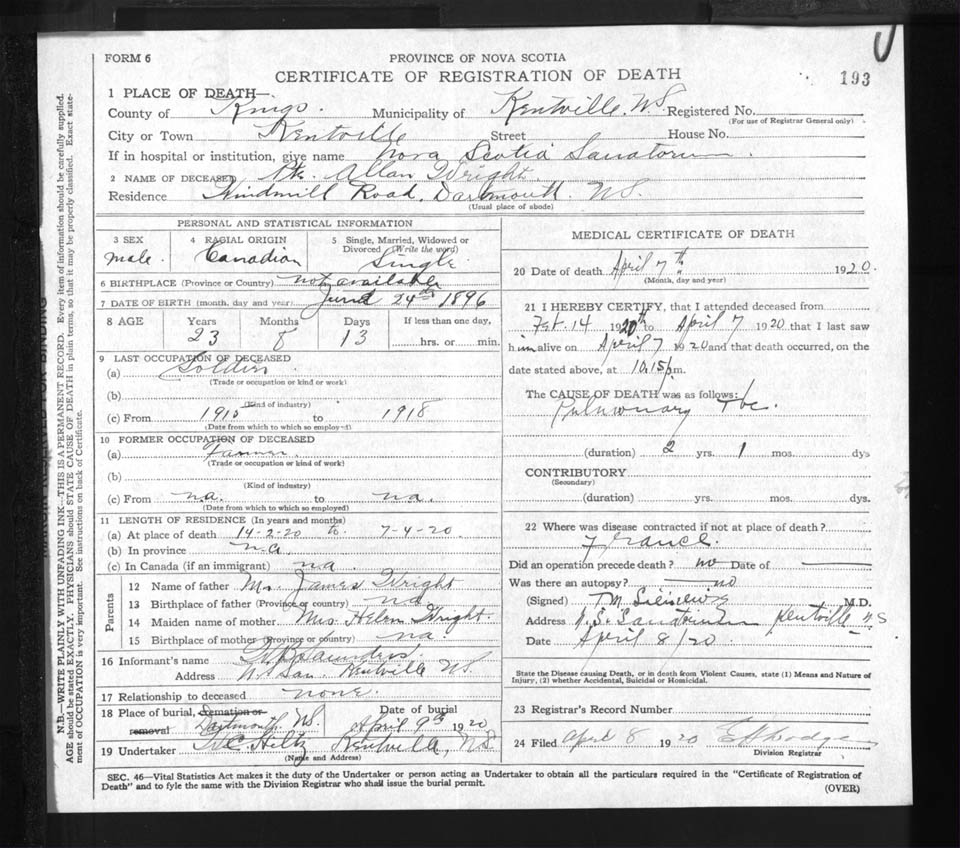 FORM 6
PROVINCE OF NOVA SCOTIA
CERTIFICATE OF REGISTRATION OF DEATH
193
1 PLACE OF DEATH—
County of Kings. Municipality of Kentville. N.S. Registered No.
(For use of Registrar General only)
City or Town Kentville Street House No.
If in hospital or institution, give name Nova Scotia Sanatorium.
2 NAME OF DECEASED Pte. Allan Wright.
Residence Windmill Road, Dartmouth. N.S.
(Usual place of abode)
PERSONAL AND STATISTICAL INFORMATION
3 SEX 4 RACIAL ORIGIN 5 Single, Married, Widowed or
Divorced (Write the word)
male. Canadian Single
6 BIRTHPLACE (Province or Country) not available
7 DATE OF BIRTH (month, day and year) June 24th 1896
8 AGE Years Months Days If less than one day,
23 8 13 hrs. or min.
9 LAST OCCUPATION OF DECEASED
(a) Soldier.
(Trade or occupation or kind or work)
(b)
(Kind of industry)
(c) From to 1918
(Date from which to which so employed)
10 FORMER OCCUPATION OF DECEASED
(a)
(Trade or occupation or kind of work)
(b)
(Kind of industry)
(c) From n.a. to n.a.
(Date from which to which so employed)
11 LENGTH OF RESIDENCE (In years and months)
(a) At place of death 14-2-20 to 7-4-20
(b) In province n.a.
(c) In Canada (if an immigrant) n.a.
Parents
12 Name of father Mr. James Wright
13 Birthplace of father (Province or country) na
14 Maiden name of mother Mrs. Helen Wright.
15 Birthplace of mother (Province or country) na
16 Informant's name Saunders.
Address N.S. San. Kentville N.S.
17 Relationship to deceased none.
18 Place of burial, cremation or Date of burial
removal Dartmouth, N.S. April 9th 1920
19 Undertaker W.C. Hiltz Kentville, N.S.
(Name and Address)
MEDICAL CERTIFICATE OF DEATH
20 Date of death April 7th 1920.
(Month, day and year)
21 I HEREBY CERTIFY, that I attended deceased from
Feb. 14 1920 to April 7 1920 that I last saw
him alive on April 7 1920 and that death occurred, on the
date stated above, at 10.15 p.m.
The CAUSE OF DEATH was as follows:
Pulmonary Tbc.
(duration) 2 yrs. 1 mos. dys
CONTRIBUTORY
(Secondary)
(duration) yrs. mos. dys.
22 Where was disease contracted if not at place of death?
France.
Did an operation precede death? no Date of
Was there an autopsy? no
(Signed) M.D.
Address N.S. Sanatorium Kentville NS
Date April 8/20.
State the Disease causing Death, or in death from Violent Causes, state (1) Means and Nature of
Injury, (2) whether Accidental, Suicidal or Homicidal.
23 Registrar's Record Number
24 Filed April 8 1920
Division Registrar
SEC. 46—Vital Statistics Act makes it the duty of the Undertaker or person acting as Undertaker to obtain all the particulars required in the "Certificate of Registration of
Death" and to fyle the same with the Division Registrar who shall issue the burial permit.
(OVER)
N.B.—WRITE PLAINLY WITH UNFADING INK—THIS IS A PERMANENT RECORD. Every item of information should be carefully supplied.
AGE should be stated EXACTLY. PHYSICIANS should STATE CAUSE OF DEATH in plain terms, so that it may be properly classified. Exact state-
ment of OCCUPATION is very important. See instructions on back of Certificate.